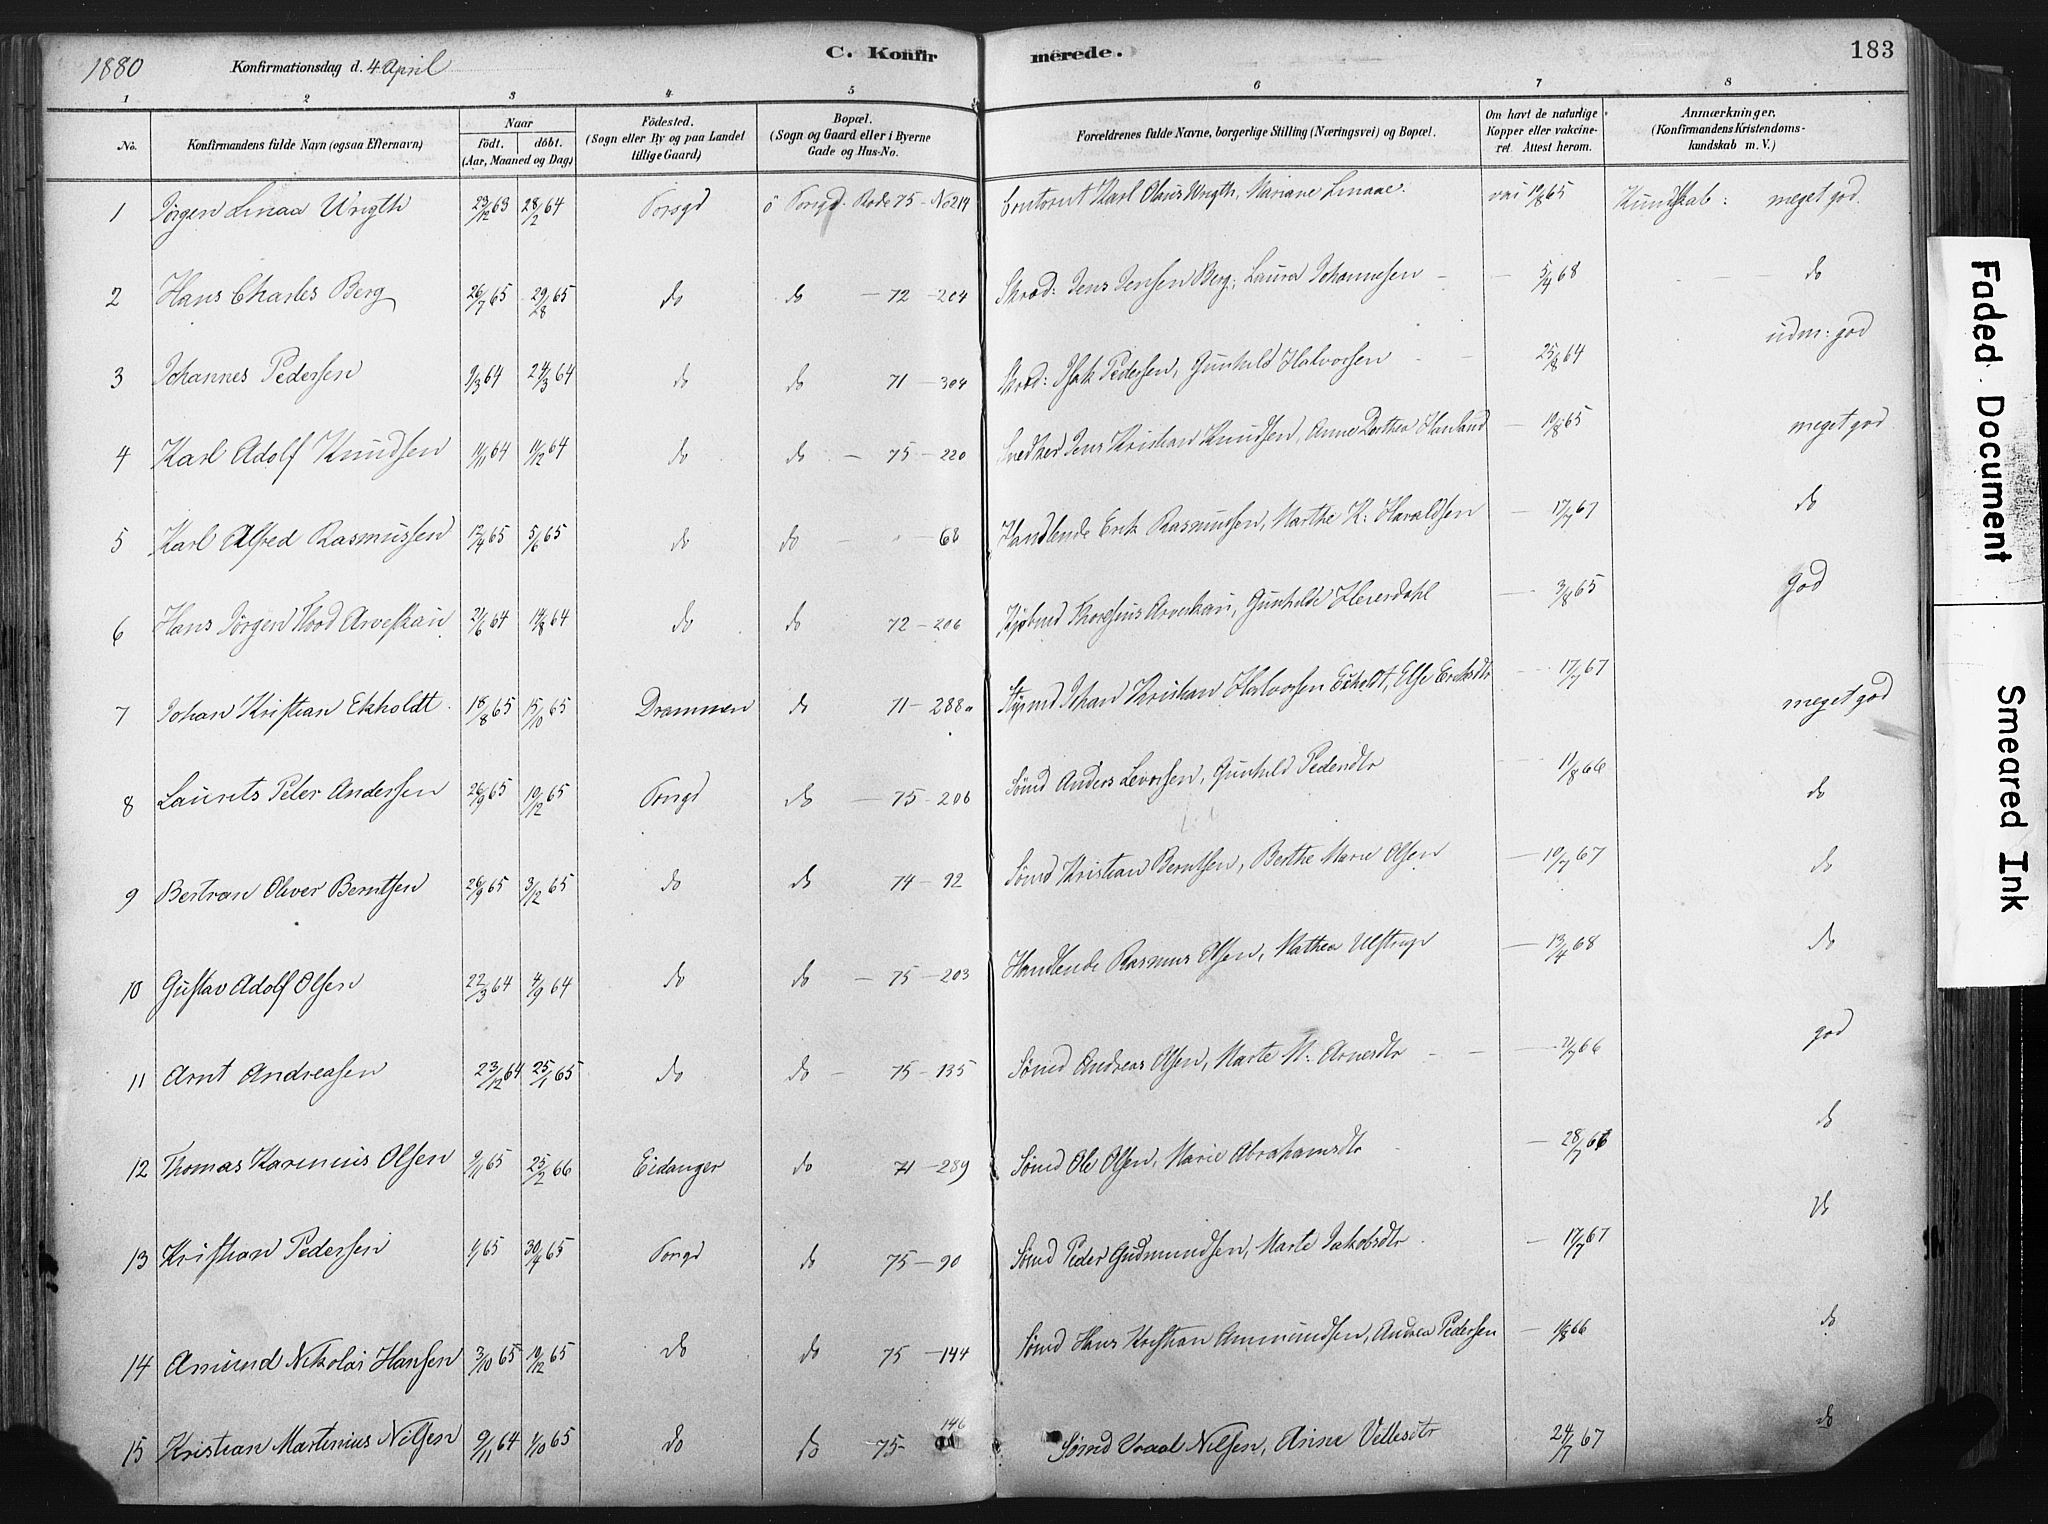 1880 Konfirmationsdag d. 4 April C. Konfirmerede. 183
1 2 3 4 5 6 7 8
No. Konfirmandens fulde Navn (ogsaa Efternavn) Naar födt. döbt. (Aar, Maaned og Dag) Födested. (Sogn eller By og paa Landet tillige Gaard) Bopæl. (Sogn og Gaard eller i Byerne Gade og Hus-No. Forældrenes fulde Navne, borgerlige Stilling (Næringsvei) og Bopæl. Om havt de naturlige Kopper eller vakcineret Attest herom. Anmærkninger. (Konfirmandens Kristendomskundskab m. V.)
1 Jörgen Linaa Wrigth 23/12 63 28/2 64 Porsgd ö Porsgd. Rode 75 - No 214 Contorist Karl Olaus Wrigth, Mariane Linaae. vac 10/8 65 Kundskab: meget god.
2 Hans Charles Berg 26/7 65 29/8 65 do do - 72 - 204 Skræd: Jens Jensen Berg, Laura Johannesen - 5/4 68 do
3 Johannes Pedersen 9/3 64 24/3 64 do do 71 - 304 Skræd: Isak Pedersen, Gunhild Halvorsen - 25/8 64 udm: god
4 Karl Adolf Knudsen 11/11 64 11/12 64 do do - 75 - 220 Snedker Jens Kristian Knudsen, Anne Dorthea - 10/8 65 meget god
5 Karl Alfred Rasmussen 13/4 65 5/6 65 do do - 68 Handlende Erik Rasmussen, Marthe K: Haraldsen - 17/7 67 do
6 Hans Jörgen Arveskau 21/6 64 14/8 64 do do 72 - 206 Arveskau, Gunhilde - 3/8 65 god
7 Johan Kristian Ekholdt 18/8 65 15/10 65 Drammen do 71 - 288a Styrmd Johan Kristian Halvorsen Ekholdt, Else Eriksdtr - 17/7 67 meget god
8 Laurits Peter Andersen 26/9 65 10/12 65 Porsgd do - 75 - 206 Sömd Anders Levorsen, Gunhild Pedersdtr - 11/8 66 do
9 Bertran Oliver Berntsen 26/9 65 3/12 65 do do 74 - 92 Sömd Kristian Berntsen, Berthe Marie Olsen - 10/7 67 do
10 Gustav Adolf Olsen 22/3 64 4/9 64 do do - 75 - 203 Handlende Rasmus Olsen, Mathea Ulstrup - 13/4 68 do
11 Arnt Andreasen 23/12 64 25/1 65 do do - 75 - 135 Sömd Andreas Olsen, Marte M: Arnesdtr - 21/7 66 god
12 Thomas Karenius Olsen 9/11 65 25/2 66 Eidanger do 71 - 289 Sömd Ole Olsen, Marie Abrahamsdtr - 28/7 66 do
13 Kristian Pedersen 65 30/4 65 Porsgd do 75 - 90 Sömd Peder Gudmundsen, Marte Jakobsdtr - 17/7 67 do
14 Amund Nikolai Hansen 3/10 65 10/12 65 do do 75 - 144 Sömd Hans Kristian Ammundsen, Andrea Pedersen - 66 do
15 Kristian Martinius Nilsen 9/11 64 1/10 65 do do 75 - 146 Sömd Nilsen, Anne 24/7 67 do
Faded Document
Smeared Ink